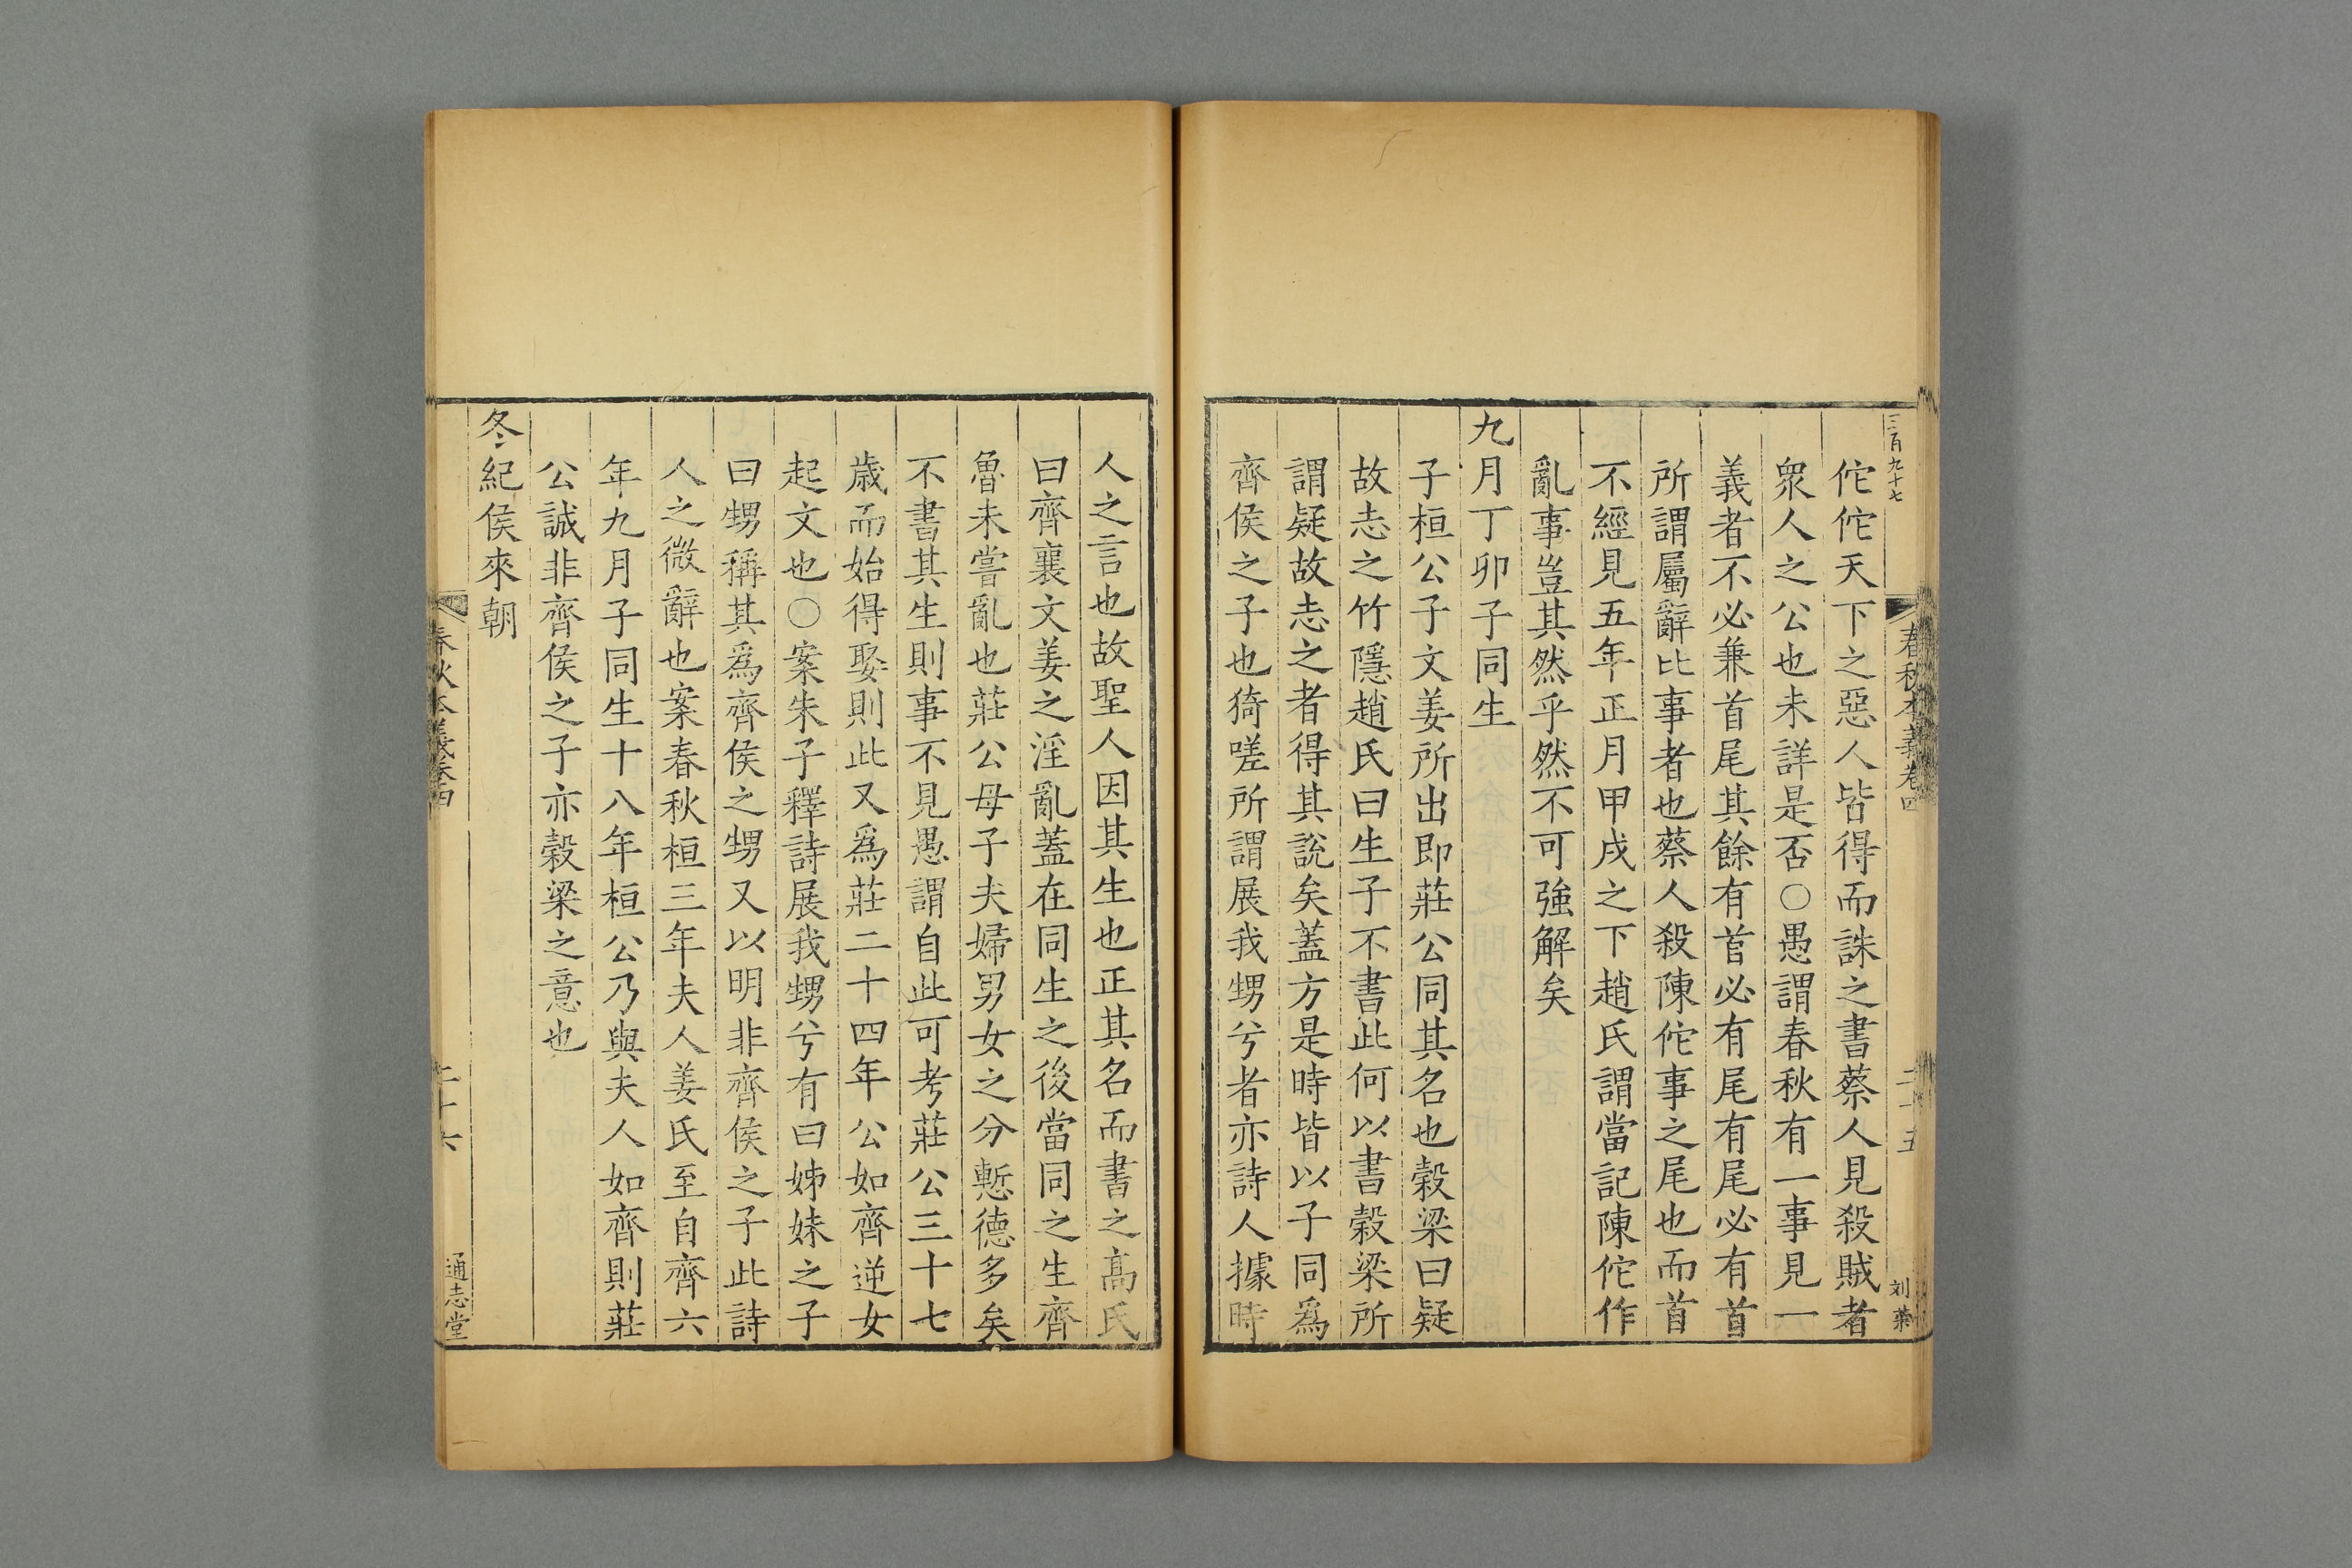 三百九十七
春秋本義卷四
二十五
刘葉
佗佗天下之惡人皆得而誅之書蔡人見殺賊者
衆人之公也未詳是否○愚謂春秋有一事見一
義者不必兼首尾其餘有首必有尾有尾必有首
所謂屬辭比事者也蔡人殺陳佗事之尾也而首
不經見五年正月甲戌之下趙氏謂當記陳佗作
亂事豈其然乎然不可強解矣
九月丁卯子同生
子桓公子文姜所出即莊公同其名也榖梁曰疑
故志之竹隱趙氏曰生子不書此何以書榖梁所
謂疑故志之者得其說矣蓋方是時皆以子同爲
齊侯之子也猗嗟所謂展我甥兮者亦詩人據時
人之言也故聖人因其生也正其名而書之高氏
曰齊襄文姜之淫亂蓋在同生之後當同之生齊
魯未嘗亂也莊公母子夫婦男女之分慙德多矣
不書其生則事不見愚謂自此可考莊公三十七
歲而始得娶則此又爲莊二十四年公如齊逆女
起文也○案朱子釋詩展我甥兮有曰姊妹之子
曰甥稱其爲齊侯之甥又以明非齊侯之子此詩
人之微辭也案春秋桓三年夫人姜氏至自齊六
年九月子同生十八年桓公乃與夫人如齊則莊
公誠非齊侯之子亦榖梁之意也
冬紀侯來朝
春秋本義卷四
二十六
通志堂